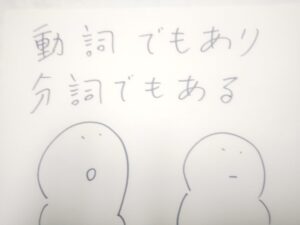 動詞でもあり
分詞でもある